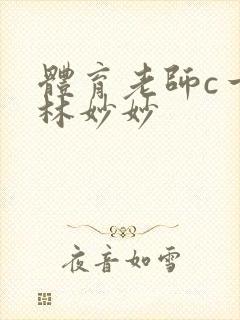 體育老師c一
林妙妙
夜音如雪